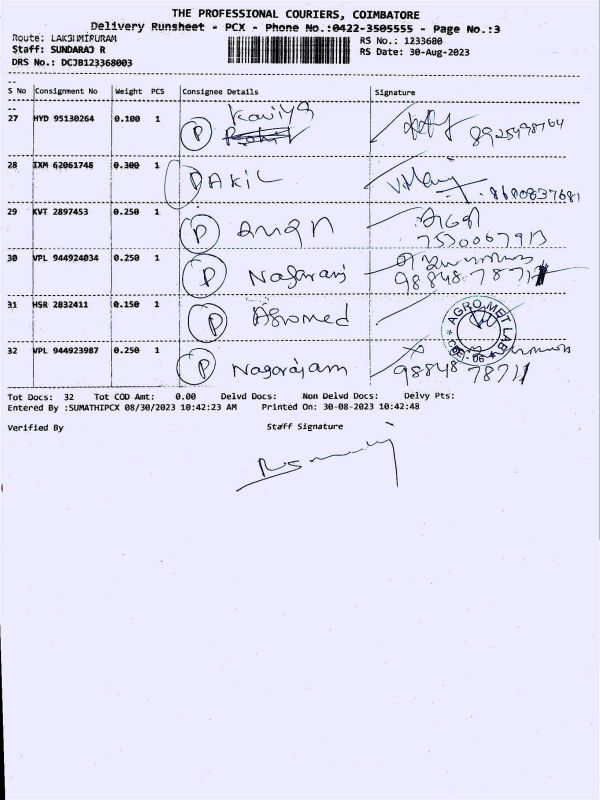 THE PROFESSIONAL COURIERS, COIMBATORE
Delivery Runsheet - PCX - Phone No.:0422-3505555 - Page No.:3
Route: LAKSHMIPURAM
RS No.: 1233680
Staff: SUNDARAJ R
RS Date: 30-Aug-2023
DRS No.: DCJB123368003
S No Consignment No Weight PCS Consignee Details Signature
27 HYD 95130264 0.100 1 P Kaviya 8925498764
28 IXM 62061748 0.300 1 P AKIL 8600837681
29 KVT 2897453 0.250 1 P 7530067913
30 VPL 944924034 0.250 1 P Nagaraj 98848 78711
31 HSR 2832411 0.150 1 P Agromed AGRO MET LAB
32 VPL 944923987 0.250 1 P Nagarajam 98848 78711
Tot Docs: 32 Tot COD Amt: 0.00 Delvd Docs: Non Delvd Docs: Delvy Pts:
Entered By :SUMATHIPCX 08/30/2023 10:42:23 AM Printed On: 30-08-2023 10:42:48
Verified By Staff Signature